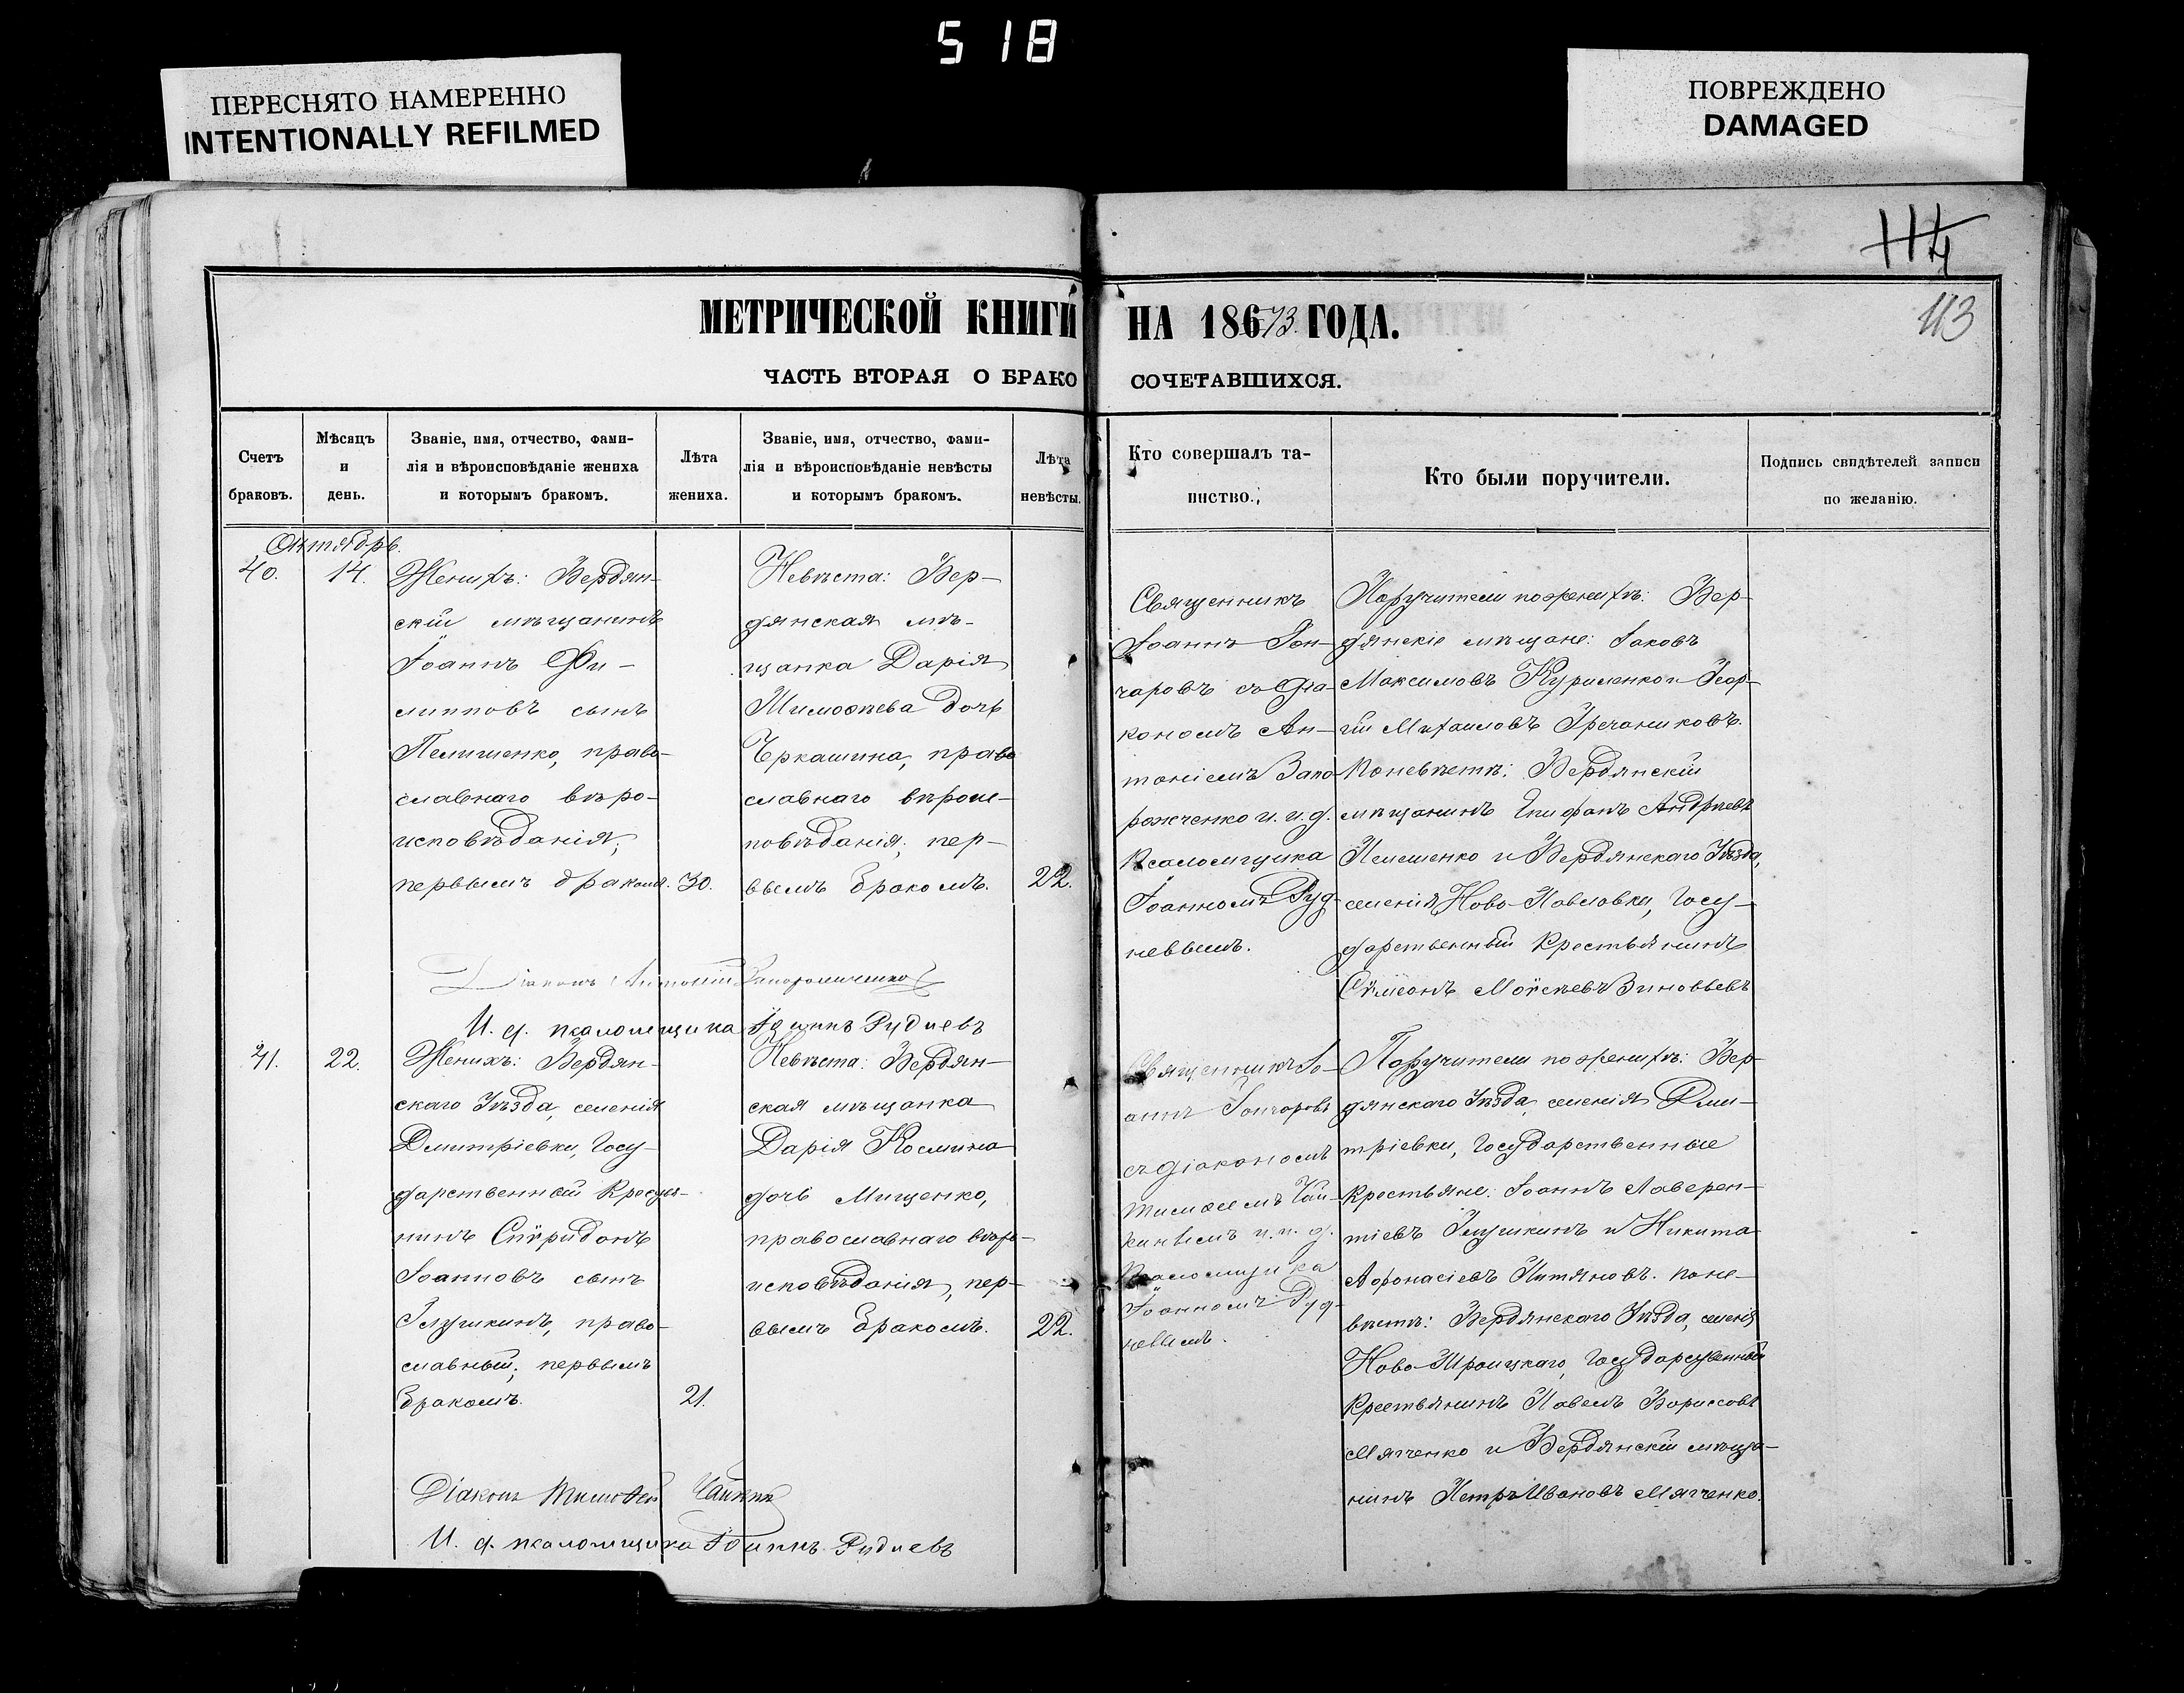 5 18
ПЕРЕСНЯТО НАМЕРЕННО
INTENTIONALLY REFILMED
ПОВРЕЖДЕНО
DAMAGED
114
113
МЕТРИЧЕСКОЙ КНИГИ НА 18673. ГОДА.
ЧАСТЬ ВТОРАЯ О БРАКОСОЧЕТАВШИХСЯ.
Счетъ
браковъ.
Мѣсяцъ
и
день.
Званіе, имя, отчество, фами-
лія и вѣроисповѣданіе жениха
и которымъ бракомъ.
Лѣта
жениха.
Званіе, имя, отчество, фами-
лія и вѣроисповѣданіе невѣсты
и которымъ бракомъ.
Лѣта
невѣсты.
Кто совершалъ та-
инство.
Кто были поручители.
Подпись свидѣтелей записи
по желанію.
Октябрь.
40.
14.
Женихъ: Бердян-
скій мѣщанинъ
Іоаннъ Фи-
липповъ сынъ
Пелишенко, право-
славнаго вѣро-
исповѣданія,
первымъ бракомъ.
30.
Невѣста: Бер-
дянская мѣ-
щанка Дарія
Тимофѣева дочь
Чркашина, право
славнаго вѣроис-
повѣданія, пер-
вымъ бракомъ.
22.
Священникъ
Іоаннъ Гон-
чаровъ съ діа-
кономъ Ан-
тоніемъ Запо-
рожченко и и. д.
Псаломщика
Іоанномъ Руд-
невымъ.
Поручители по женихѣ: Бер-
дянскіе мѣщане: Іаковъ
Максимовъ Куриленко и Геор-
гій Михаиловъ Гречаниковъ.
По невѣстѣ: Бердянскій
мѣщанинъ Епифанъ Андрѣевъ
и Бердянскаго Уѣзда,
селенія Ново-Павловки, Госу-
дарственный Крестьянинъ
Сѵмеонъ Моѵсѣевъ Зиновьевъ
Діаконъ Антоній Запорожченко
И. д. псаломщика Іоаннъ Рудневъ
41.
22.
Женихъ: Бердян-
скаго Уѣзда, селенія
Дмитріевки, Госу-
дарственный Кресть-
нинъ Спѵридонъ
Іоанновъ сынъ
Глушкинъ, право-
славный, первымъ
бракомъ.
21.
Невѣста: Бердян-
ская мѣщанка
Дарія Космина
дочь Мищенко,
православнаго вѣро-
исповѣданія, пер-
вымъ бракомъ.
22.
Священникъ Іо-
аннъ Гончаровъ
съ діакономъ
Тимофеемъ Чай-
кинымъ и и. д.
Псаломщика
Іоанномъ Руд-
невымъ.
Поручители по женихѣ: Бер-
дянскаго Уѣзда, селенія Дми-
тріевки, Государственные
Крестьяне: Іоаннъ Лаврен-
тіевъ Глушкинъ и Никита
Афонасіевъ Питяновъ. по не-
вѣстѣ: Бердянскаго Уѣзда, селенія
Ново-Троицкаго, Государственный
Крестьянинъ Павелъ Борисовъ
Мягченко и Бердянскій мѣща-
нинъ Петръ Ивановъ Мягченко.
Діаконъ Тимофей Чайкинъ
И. д. псаломщика Іоаннъ Рудневъ